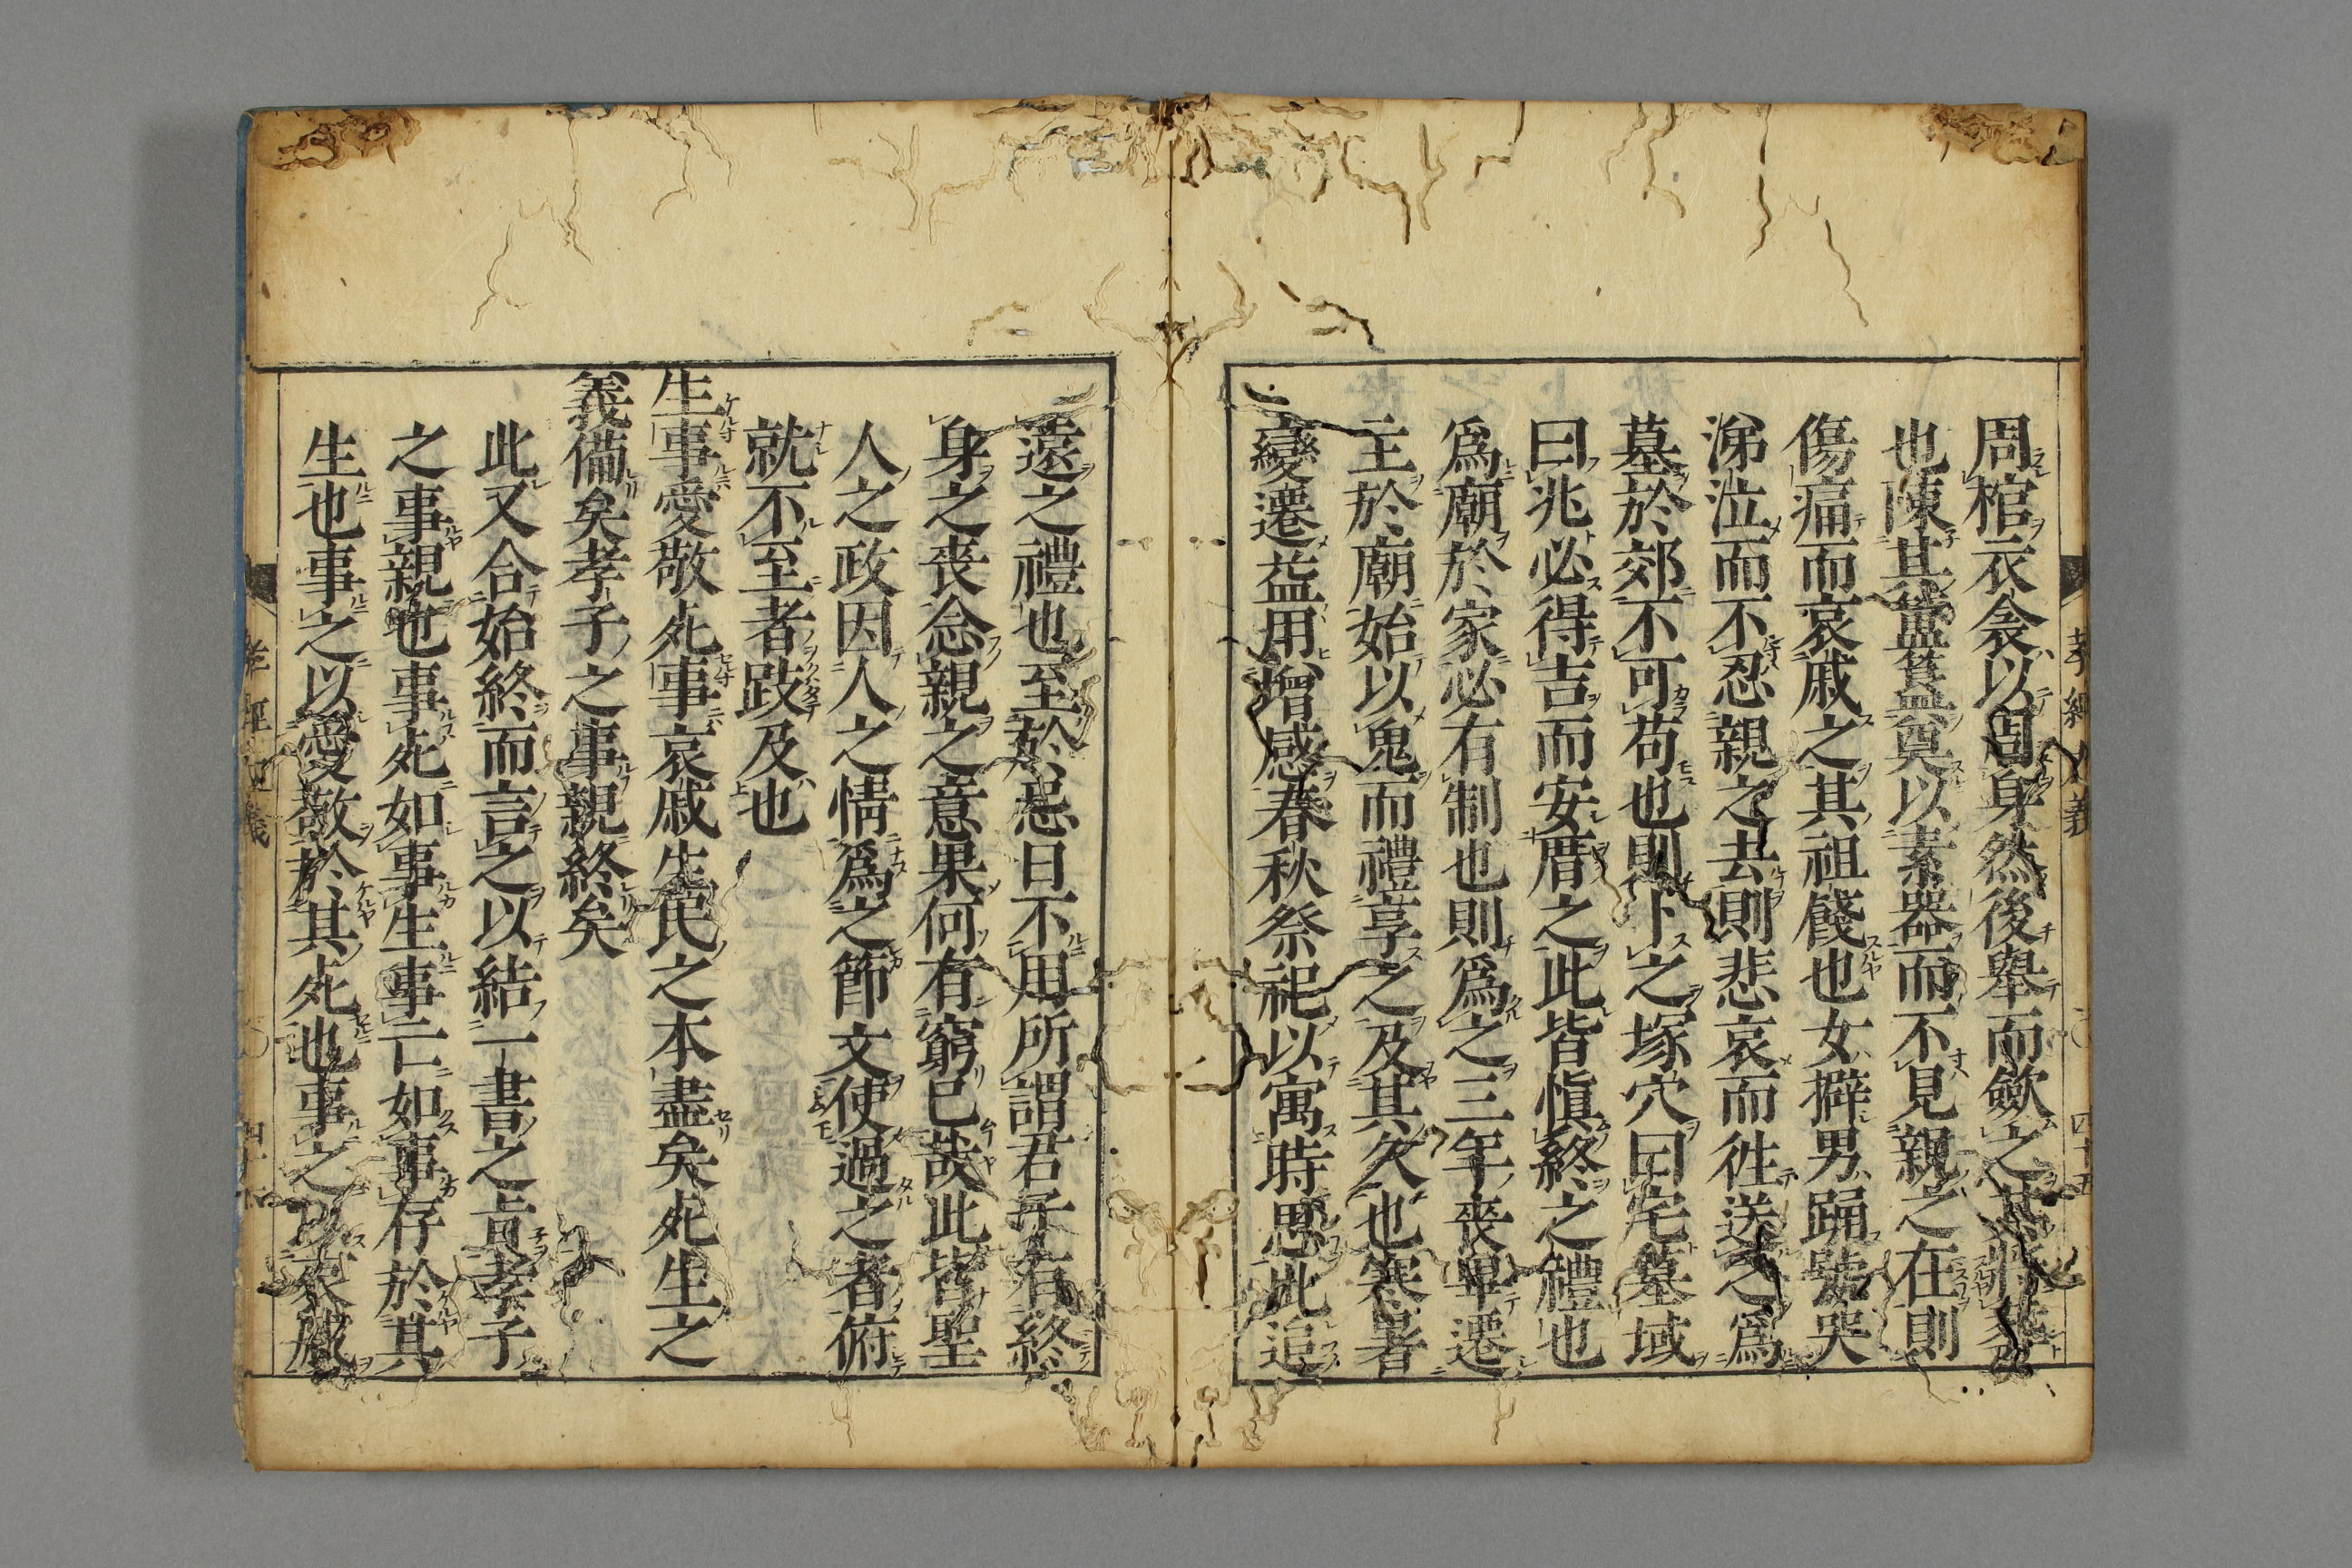 周棺衣衾以周身然後舉而斂之其將葬
也陳其簠簋奠以素器而不見親之在則
傷痛而哀戚之其祖餞也女擗男踊號哭
涕泣而不忍親之去則悲哀而徃送之爲
墓於郊不可苟也則卜之塚穴曰宅墓域
曰兆必得吉而安厝之此皆愼終之禮也
爲廟於家必有制也則爲之三年喪畢遷
主於廟始以鬼而禮享之及其久也寒暑
變遷益用增感春秋祭祀以寓時思此追
遠之禮也至於忌日不用所謂君子有終
身之喪念親之意果何有窮已哉此皆聖
人之政因人之情爲之節文使過之者俯
就不至者跂及也
生事愛敬死事哀戚生民之本盡矣死生之
義備矣孝子之事親終矣
此又合始終而言之以結一書之旨孝子
之事親也事死如事生事亡如事存於其
生也事之以愛敬於其死也事之以哀慼